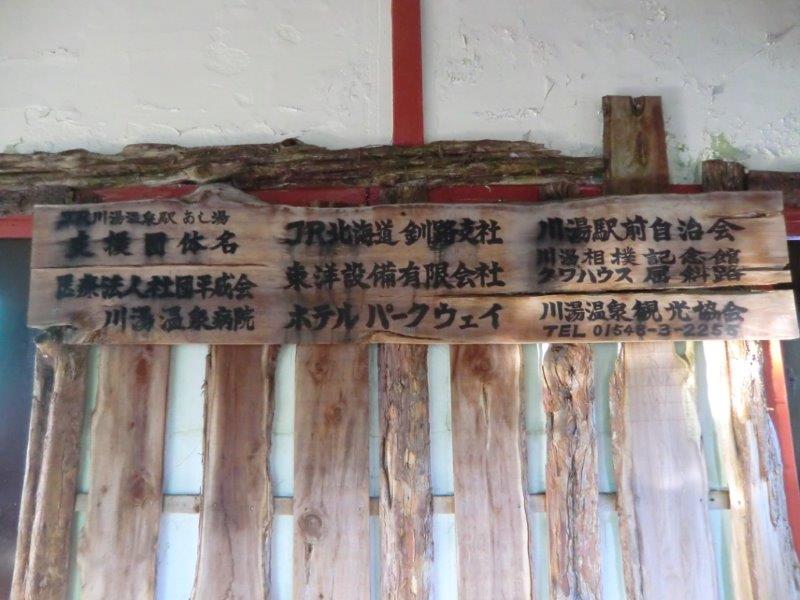 JR川湯温泉駅 あし湯
支援団体名
医療法人社団平成会
川湯温泉病院
JR北海道 釧路支社
東洋設備有限会社
ホテルパークウェイ
川湯駅前自治会
川湯相撲記念館
クワハウス屈斜路
川湯温泉観光協会
TEL 01548-3-2255